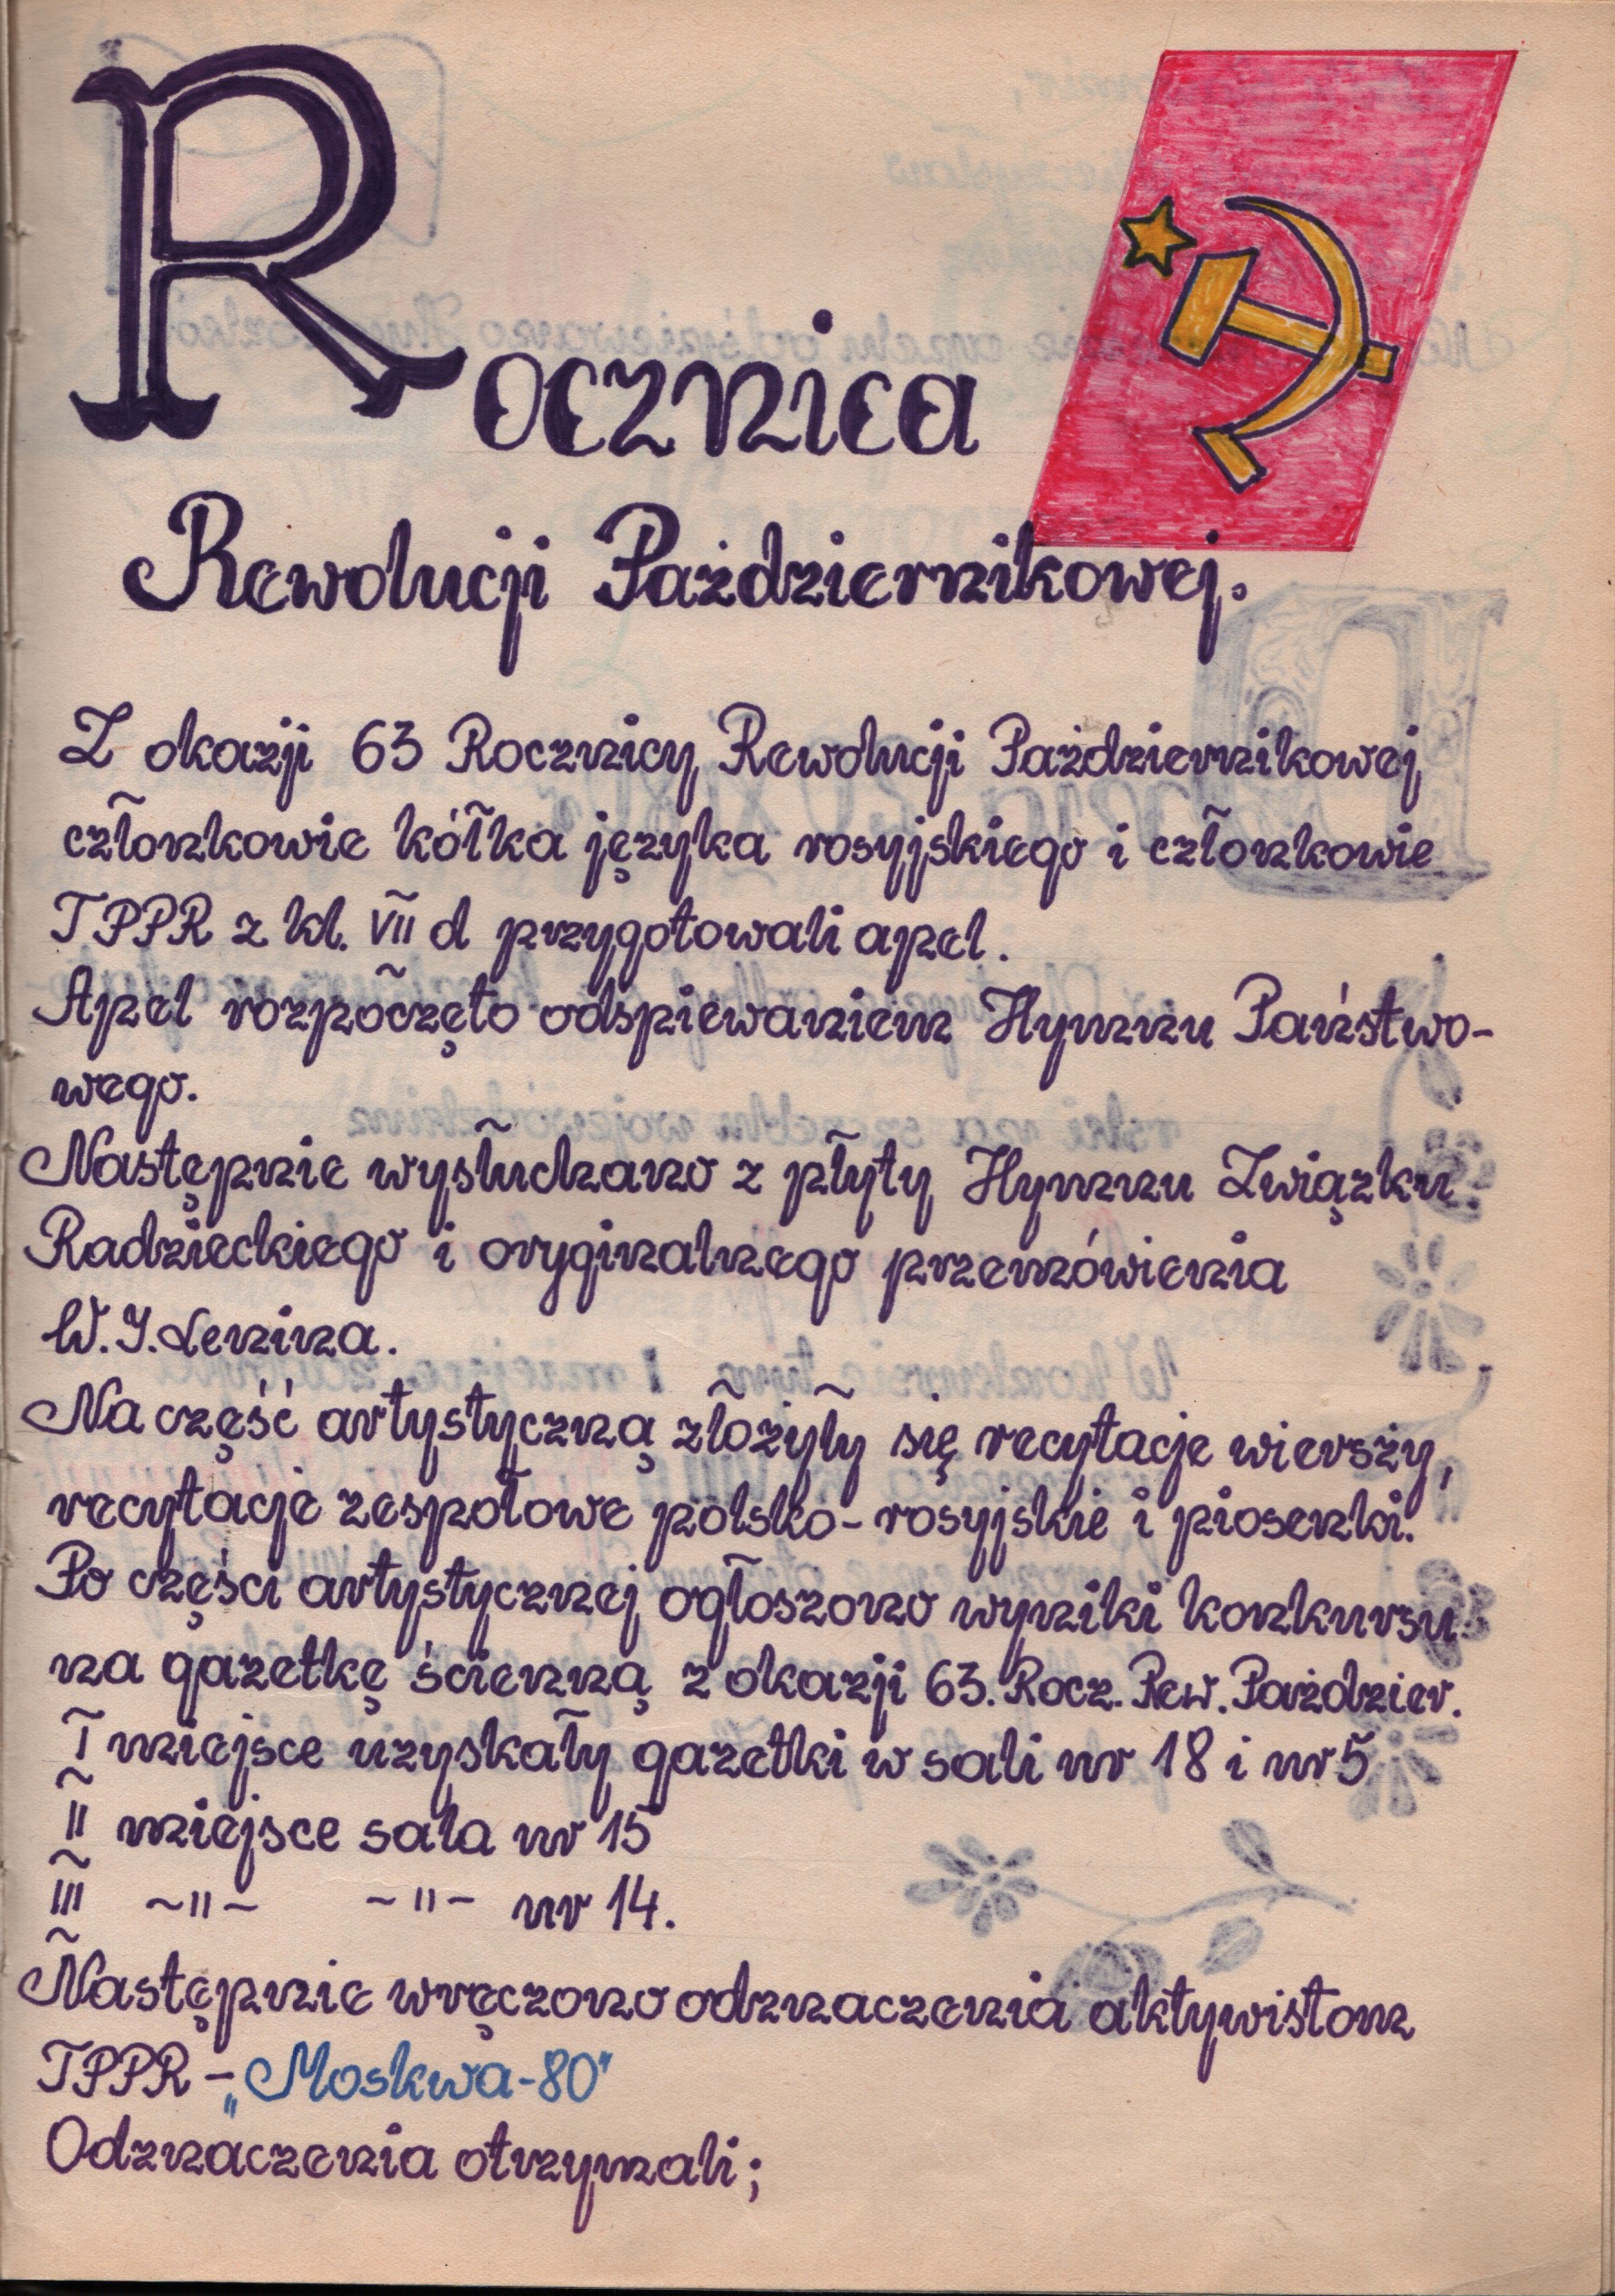 Rocznica
Rewolucji Październikowej.
Z okazji 63 Rocznicy Rewolucji Październikowej
członkowie kółka języka rosyjskiego i członkowie
TPPR z kl. VII d przygotowali apel.
Apel rozpoczęto odspiewaniem Hymnu Państwo-
wego.
Następnie wysłuchano z płyty Hymnu Związku
Radzieckiego i oryginalnego przemówienia
W. I. Lenina.
Na część artystyczną złożyły się recytacje wierszy,
recytacje zespołowe polsko-rosyjskie i piosenki.
Po części artystycznej ogłoszono wyniki konkursu
na gazetkę ścienną z okazji 63. Rocz. Rew. Paździer.
I miejsce uzyskały gazetki w sali nr 18 i nr 5
II miejsce sala nr 15
III ~"~ ~"- nr 14.
Następnie wręczono odznaczenia aktywistom
TPPR - „Moskwa-80"
Odznaczenia otrzymali;